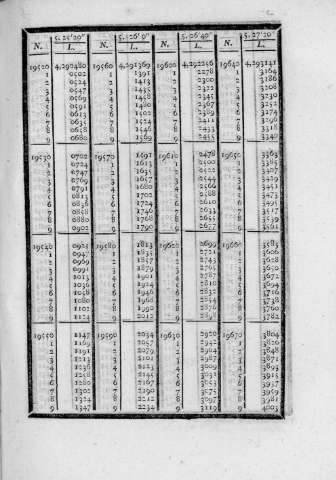 5.25'20" 5.26'0" 5.26'40" 5.27'20"
N. L. N. L. N. L. N. L.
19520 4,290480 19560 4,291369 19600 4,292256 19640 4,293141
1 0502 1 1391 1 2278 1 3164
2 0524 2 1413 2 2300 2 3186
3 0547 3 1435 3 2322 3 3208
4 0569 4 1458 4 2345 4 3230
5 0591 5 1480 5 2367 5 3252
6 0613 6 1502 6 2389 6 3274
7 0635 7 1524 7 2411 7 3296
8 0658 8 1546 8 2433 8 3318
9 0680 9 1569 9 2455 9 3340
19530 0702 19570 1591 19610 2478 19650 3363
1 0724 1 1613 1 2500 1 3385
2 0747 2 1635 2 2522 2 3407
3 0769 3 1657 3 2544 3 3429
4 0791 4 1680 4 2566 4 3451
5 0813 5 1702 5 2588 5 3473
6 0836 6 1724 6 2610 6 3495
7 0858 7 1746 7 2633 7 3517
8 0880 8 1768 8 2655 8 3539
9 0902 9 1790 9 2677 9 3561
19540 0925 19580 1813 19620 2699 19660 3583
1 0947 1 1835 1 2721 1 3606
2 0969 2 1857 2 2743 2 3628
3 0991 3 1879 3 2765 3 3650
4 1013 4 1901 4 2787 4 3672
5 1036 5 1924 5 2810 5 3694
6 1058 6 1946 6 2832 6 3716
7 1080 7 1968 7 2854 7 3738
8 1102 8 1990 8 2876 8 3760
9 1124 9 2012 9 2898 9 3782
19550 1147 19590 2034 19630 2920 19670 3804
1 1169 1 2057 1 2942 1 3826
2 1191 2 2079 2 2964 2 3848
3 1213 3 2101 3 2987 3 3871
4 1236 4 2123 4 3009 4 3893
5 1258 5 2145 5 3031 5 3915
6 1280 6 2167 6 3053 6 3937
7 1302 7 2190 7 3075 7 3959
8 1324 8 2212 8 3097 8 3981
9 1347 9 2234 9 3119 9 4003